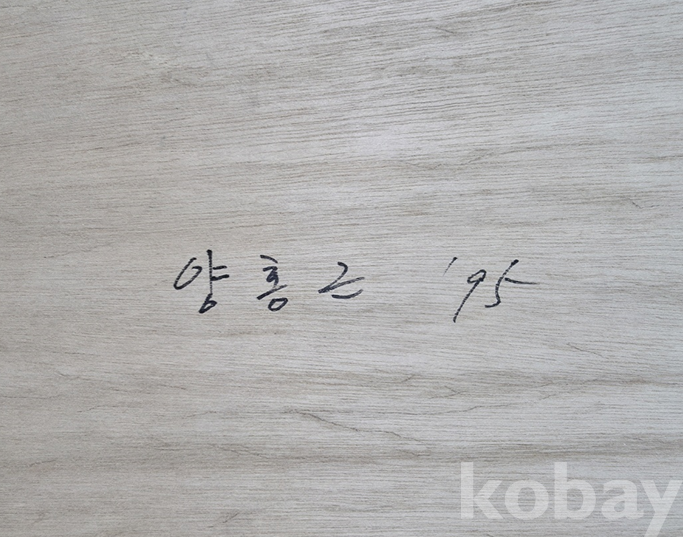 양홍근 '95
kobay